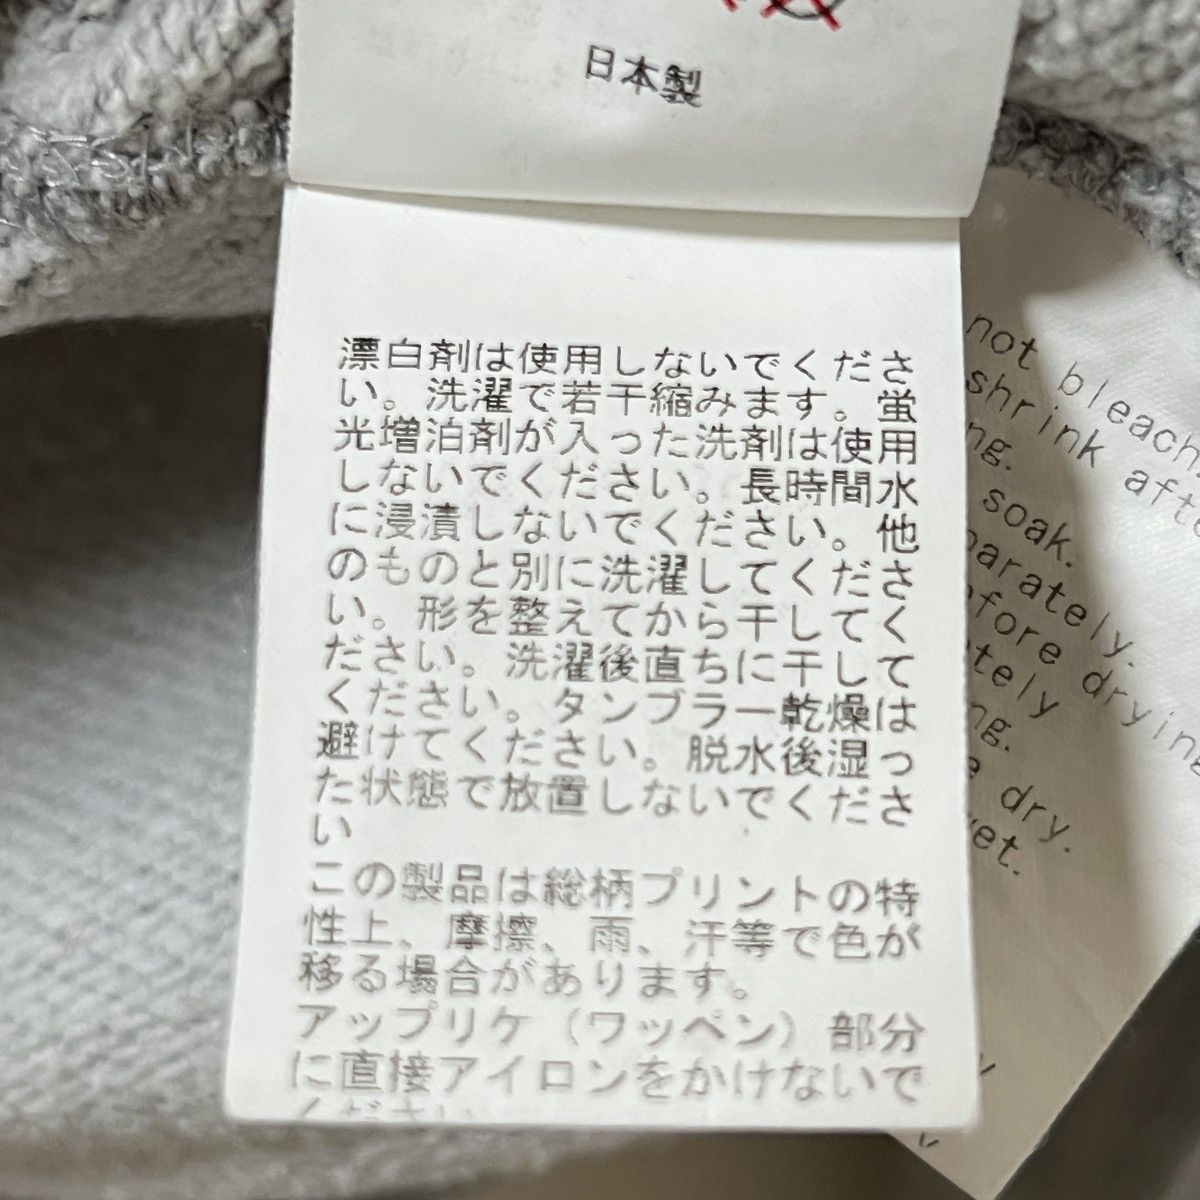 日本製
漂白剤は使用しないでくださ
い。洗濯で若干縮みます。蛍
光増泊剤が入った洗剤は使用
しないでください。長時間水
に浸漬しないでください。他
のものと別に洗濯してくださ
い。形を整えてから干してく
ださい。洗濯後直ちに干して
ください。タンブラー乾燥は
避けてください。脱水後湿っ
た状態で放置しないでくださ
い
この製品は総柄プリントの特
性上、摩擦、雨、汗等で色が
移る場合があります。
アップリケ（ワッペン）部分
に直接アイロンをかけないで
ください
not bleach
shrink aft
ng.
soak.
parately.
efore drying
tely
ng.
e dry.
wet.